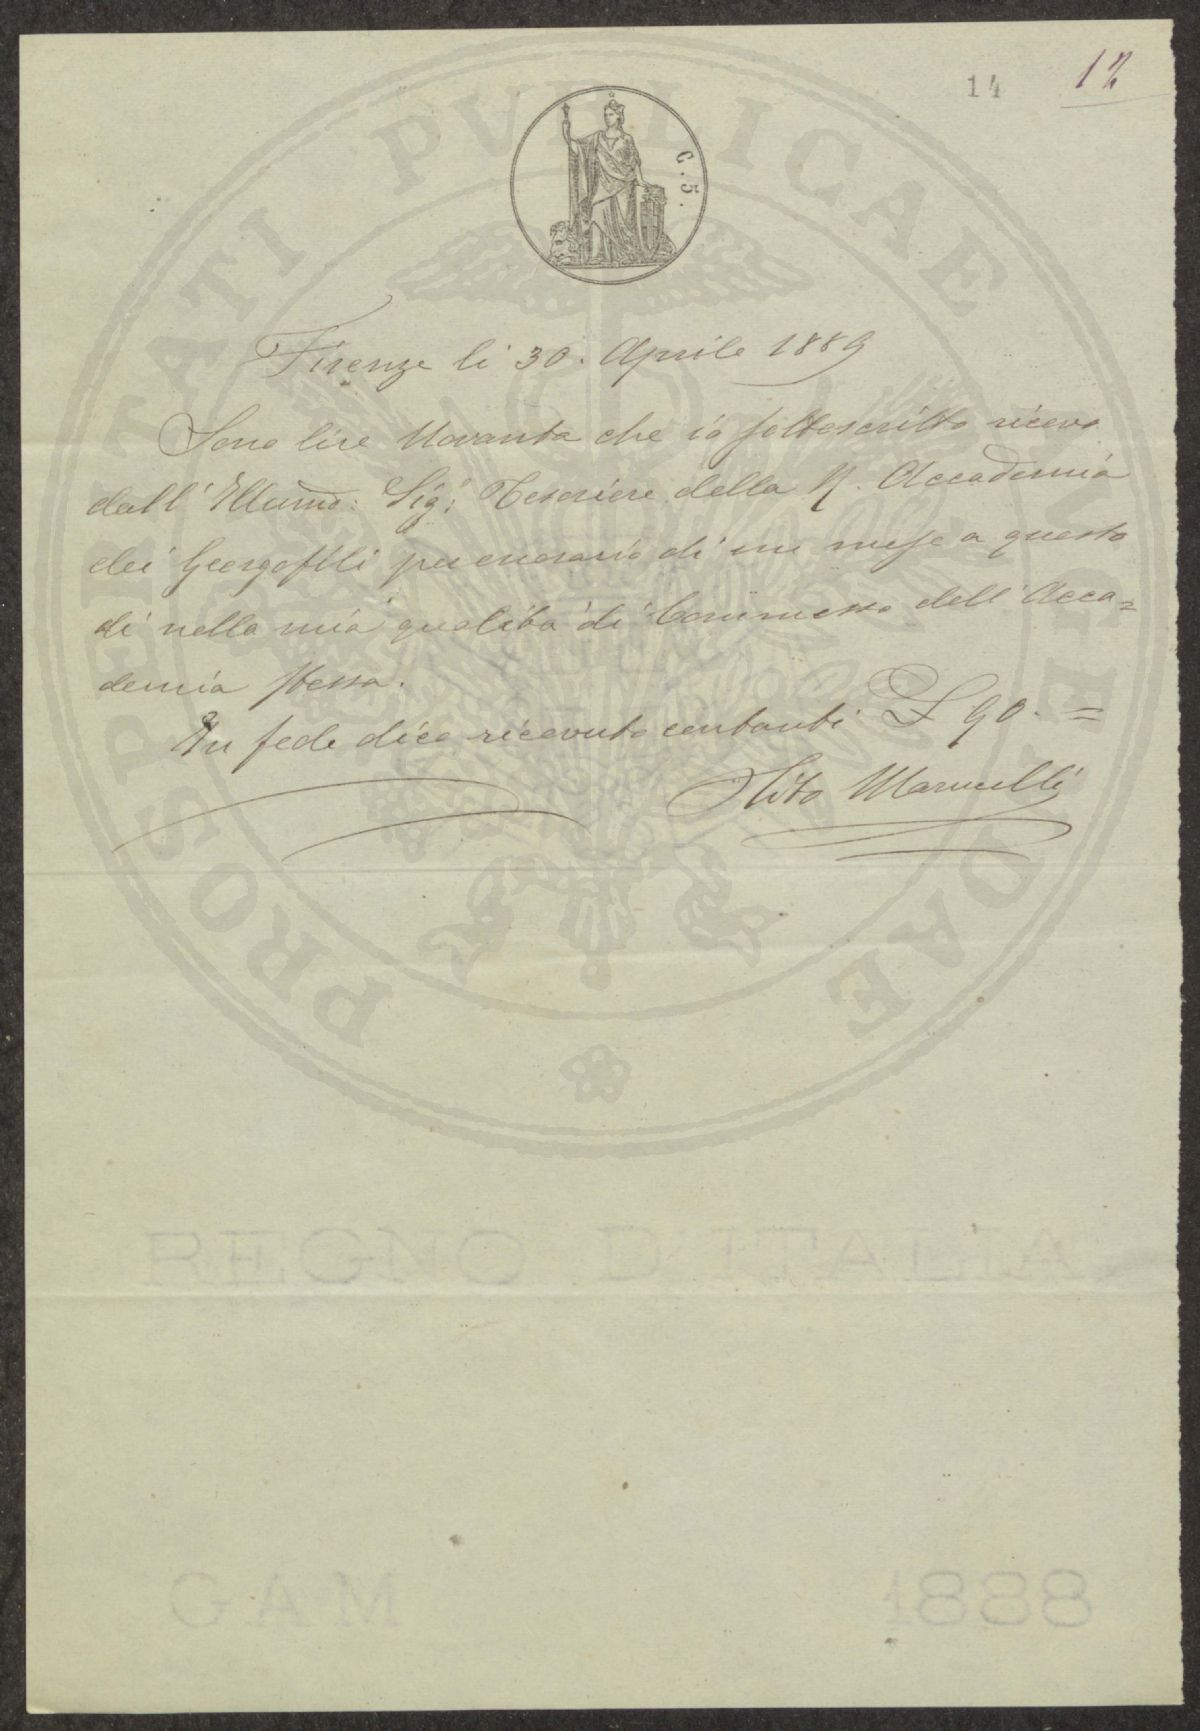 14 12
C. 5.
Firenze li 30. Aprile 1889
Sono lire Novanta che io sottoscritto ricevo
dall' Illumo: Sig: Tesoriere della R. Accademia
dei Georgofili per onorario di un mese a questo
dì nella mia qualità di Commesso dell' Acca=
demia stessa.
In fede dico ricevuto contanti £ 90. =
Tito Marucelli
PROSPERITATI PVBLICAE AVGENDAE
REGNO D'ITALIA
GAM 1888